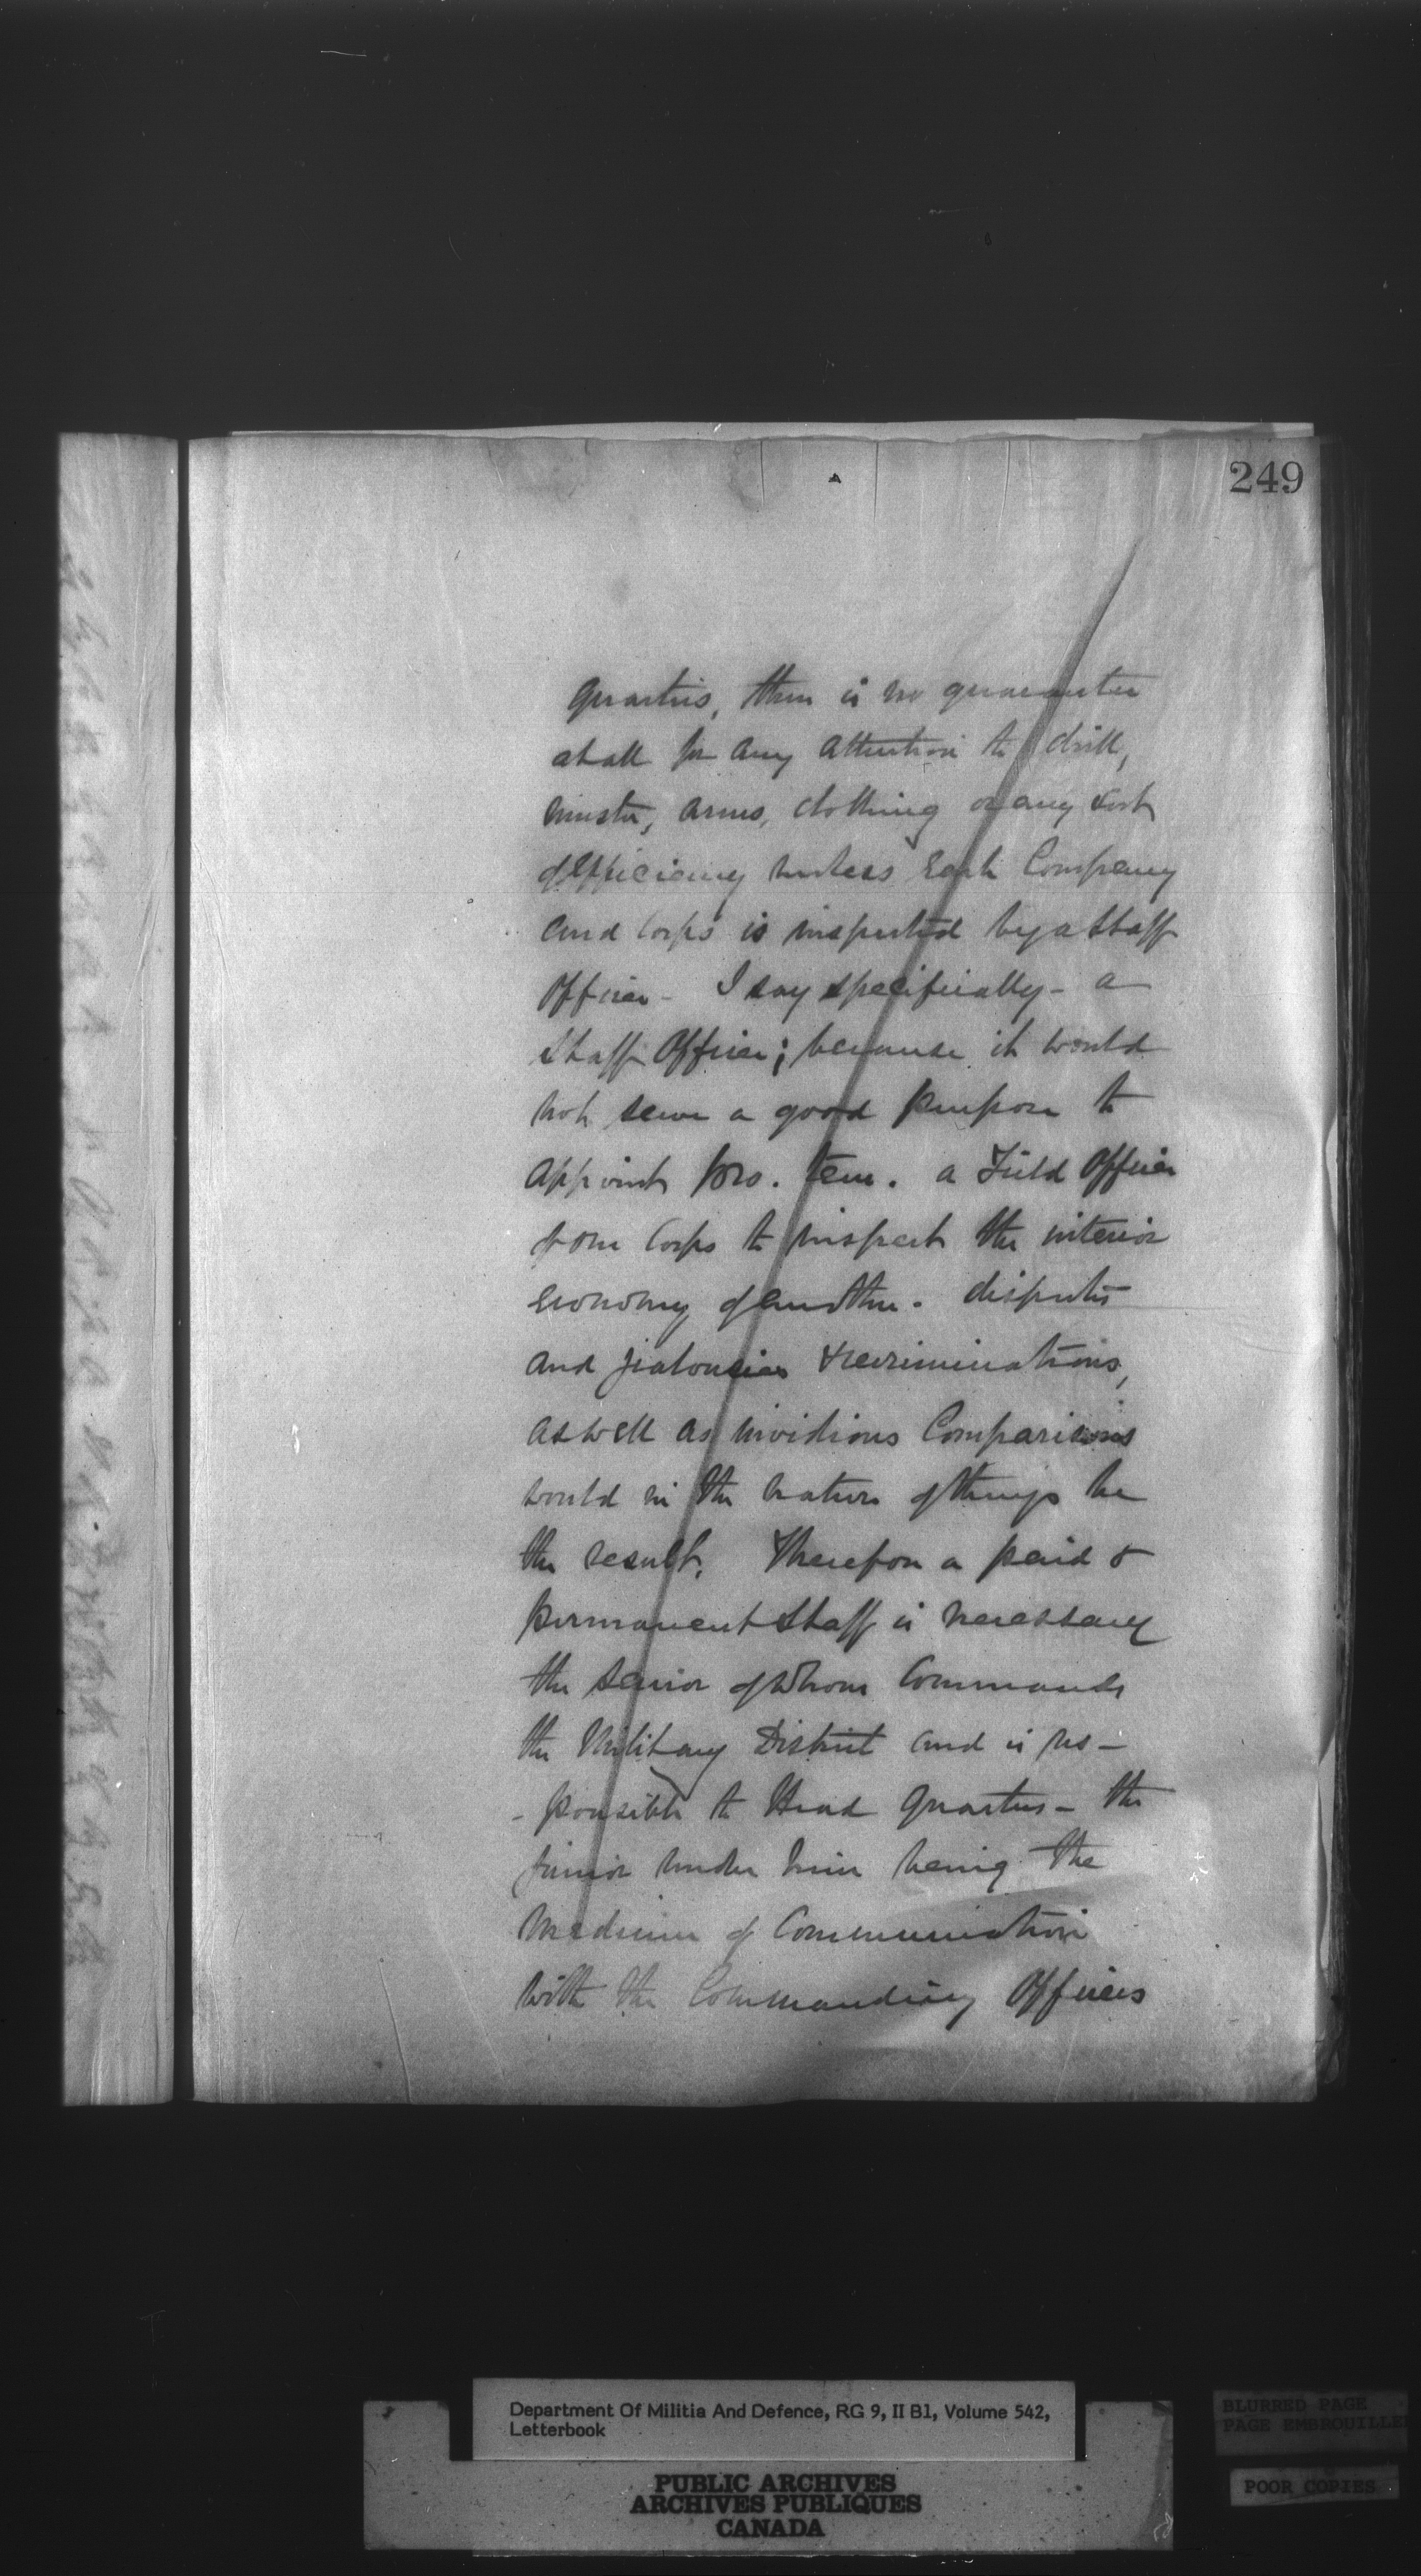 249
Quarters, there is no guarantee
at all for any attention to drill,
muster, arms, clothing or any sort
of efficiency unless Each Company
and Corps is inspected by a Staff
Officer - I say specifically - a
Staff Officer; because it would
not serve a good purpose to
appoint pro. tem. a Field Officer
of one Corps to inspect the interior
economy of another. disputes
and jealousies & recriminations,
as well as invidious Comparisons
would in the nature of things be
the result. Therefore a paid &
permanent Staff is necessary
the senior of whom Commands
the Military District and is res-
-ponsible to Head Quarters - the
junior under him being the
medium of Communication
with the Commanding Officers
Department Of Militia And Defence, RG 9, II B1, Volume 542,
Letterbook
PUBLIC ARCHIVES
ARCHIVES PUBLIQUES
CANADA
BLURRED PAGE
PAGE EMBROUILLEE
POOR COPIES